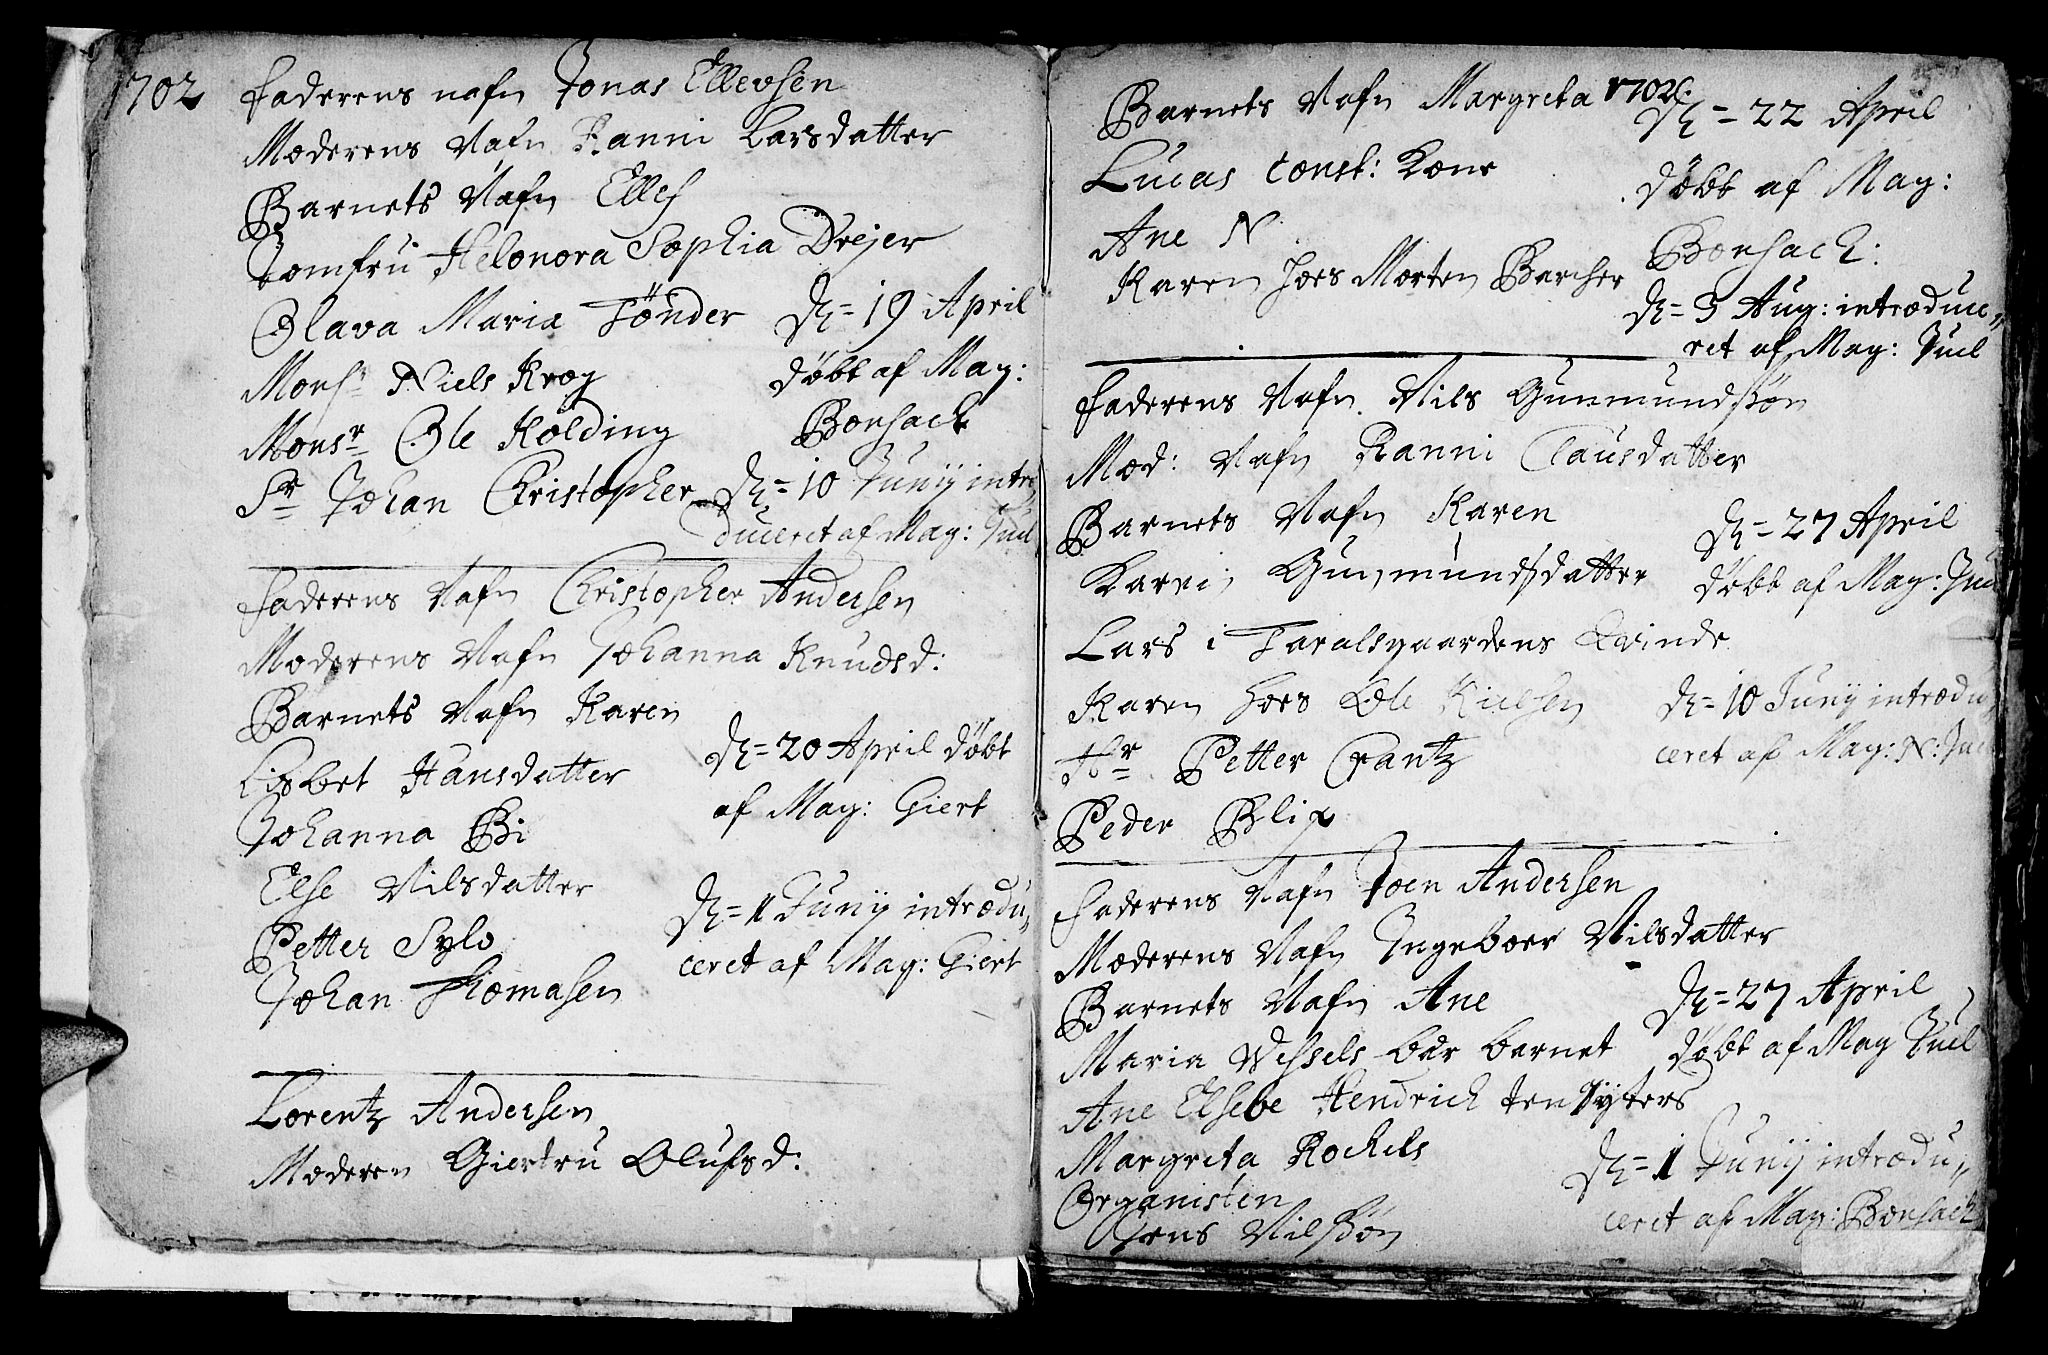 1702
Faderens nafn Jonas Ellevsen
Moderens Nafn Ranni Larsdatter
Barnets Nafn Ellef
Jomfru Helonora Sophia Drejer
Olava Maria Tönder
D. = 19 April
Monsr Niels Krog
döbt af Mag:
Monsr Ole Kolding
Bonsack
Sr Johan Christopher
D. = 10 Junij intro
duceret af Mag: Juel
Faderens Nafn Christopher Andersen
Moderens Nafn Johanna Knudsd:
Barnets Nafn Karen
Lisbet Hansdatter
D. = 20 April döbt
Johanna Bi
af Mag: Giert
Else Nilsdatter
Petter Sylo
D. = 1 Junij introdu„
ceret af Mag: Giert
Johan Thomasen
Lorentz Andersen
Moderen Giertru Olufsd:
1702
Barnets Nafn Margreta
D. = 22 April
Lucas Const: Kone
döbt af Mag:
Ane N
Bonsack:
Karen hoes Morten Barcher
D. = 3 Aug: introduce„
ret af Mag: Juel
Faderens Nafn Nils Gunmundsön
Mod: Nafn Ranni Clausdatter
Barnets Nafn Karen
D. = 27 April
Karen Gunmundsdatter
döbt af Mag: Jue
Lars i Taralsgaardens Qvinde
Karen hoes Ole Nielsen
D. = 10 Junij introdu
Hr Petter Crantz
ceret af Mag: N: Jue
Peder Blix
Faderens Nafn Joen Andersen
Moderens Nafn Ingeboer Nilsdatter
Barnets Nafn Ane
D. = 27 April
Maria Wessels bær barnet
döbt af Mag Juel
Ane Elsebe Hendrich
Margreta Rockels
D. = 1 Junij introdu„
Organisten
ceret af Mag: Bonsack
Jens Nilsön